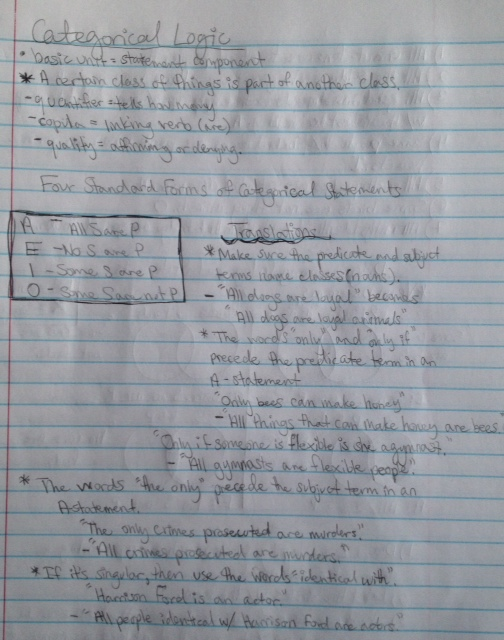 Categorical Logic
• basic unit = statement component
* A certain class of things is part of another class.
- quantifier = tells how many
- copula = linking verb (are)
- quality = affirming or denying.
Four Standard Forms of Categorical Statements
A - All S are P
E - No S are P
I - Some S are P
O - Some S are not P
Translations
* Make sure the predicate and subject
terms name classes (nouns).
- "All dogs are loyal" becomes
"All dogs are loyal animals"
* The words "only" and "only if"
precede the predicate term in an
A-statement
"Only bees can make honey"
- "All things that can make honey are bees."
"Only if someone is flexible is she a gymnast."
- "All gymnasts are flexible people."
* The words "the only" precede the subject term in an
A statement.
"The only crimes prosecuted are murders."
- "All crimes prosecuted are murders."
* If it's singular, then use the words "identical with".
"Harrison Ford is an actor."
- "All people identical w/ Harrison Ford are actors"